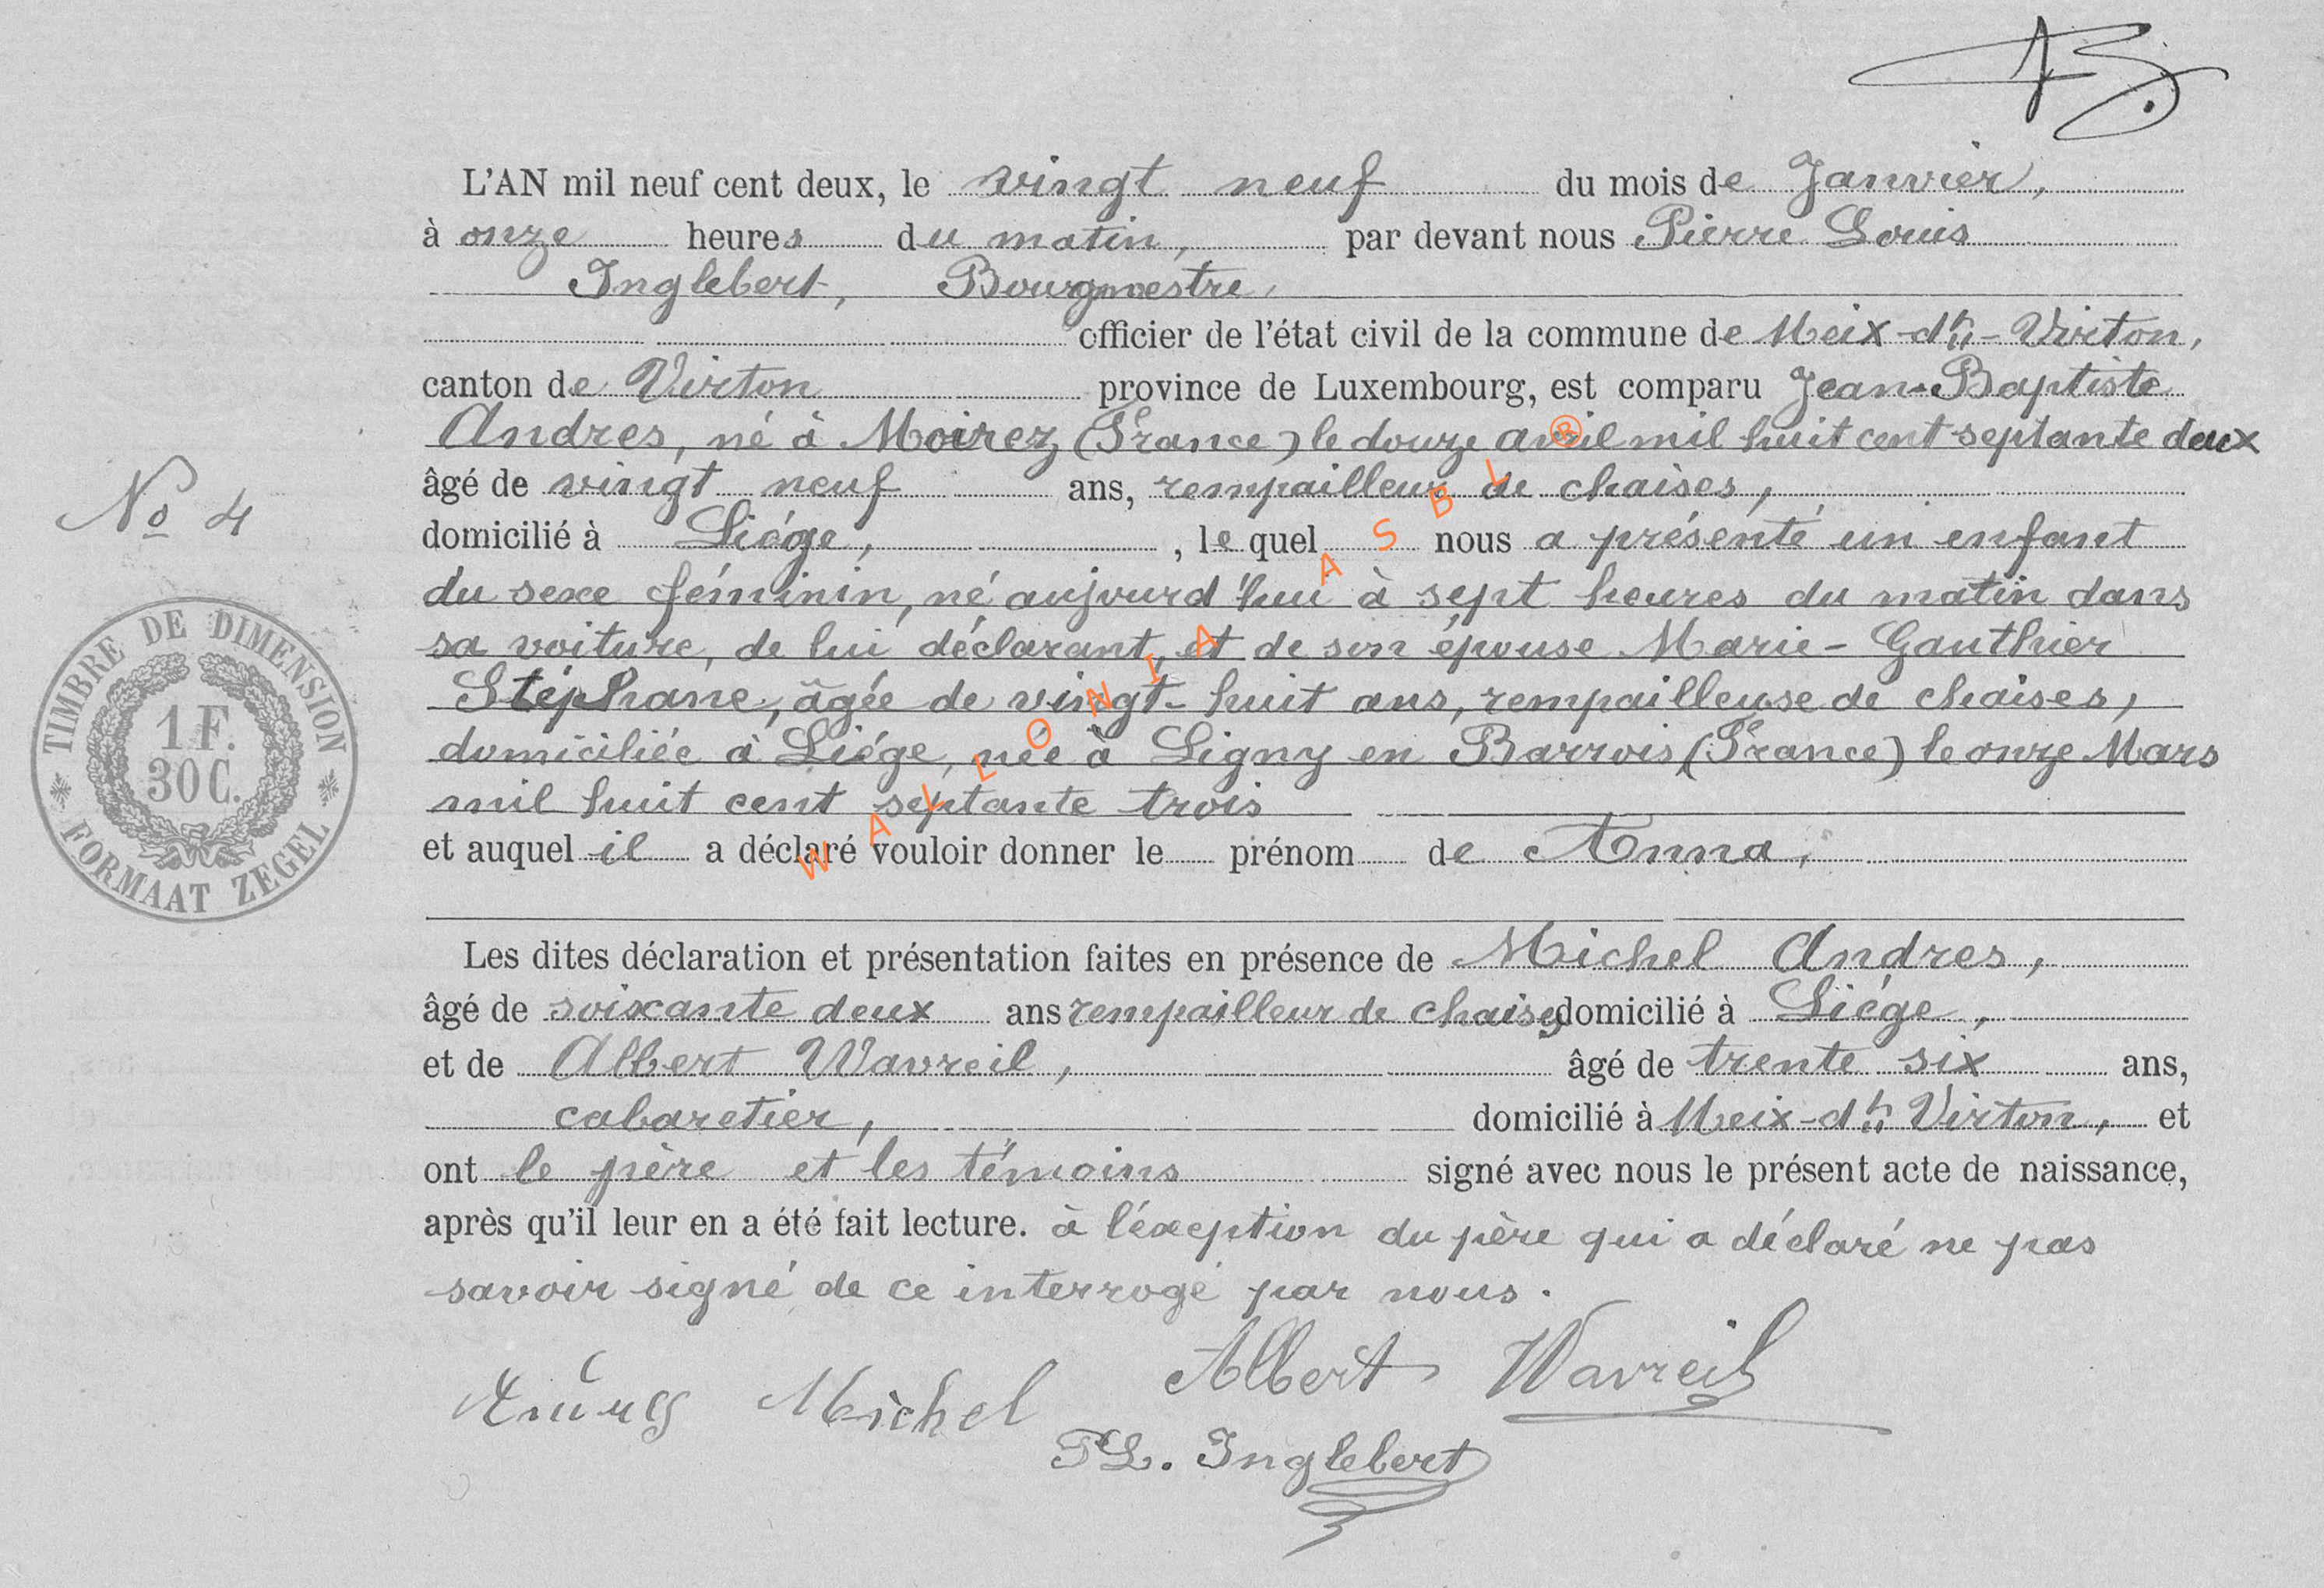 L'AN mil neuf cent deux, le vingt neuf du mois de Janvier,
à onze heures du matin, par devant nous Pierre Louis
Inglebert, Bourgmestre,
officier de l'état civil de la commune de Meix-dt-Virton,
canton de Virton province de Luxembourg, est comparu Jean-Baptiste
Andres, né à Moirez (France) le douze avril mil huit cent septante deux
N° 4
âgé de vingt neuf ans, rempailleur de chaises,
domicilié à Liége, , le quel nous a présenté un enfant
du sexe féminin, né aujourd'hui à sept heures du matin dans
sa voiture, de lui déclarant, et de son épouse Marie-Gauthier
Stéphanie, âgée de vingt-huit ans, rempailleuse de chaises,
domiciliée à Liége, née à Ligny en Barrois (France) le onze Mars
mil huit cent septante trois
et auquel il a déclaré vouloir donner le prénom de Anna,
TIMBRE DE DIMENSION
1 F.
30 C.
FORMAAT ZEGEL
WALLONIA ASBL ®
Les dites déclaration et présentation faites en présence de Michel Andres,
âgé de soixante deux ans rempailleur de chaises domicilié à Liége,
et de Albert Wavreil, âgé de trente six ans,
cabaretier, domicilié à Meix-dt Virton, et
ont le père et les témoins signé avec nous le présent acte de naissance,
après qu'il leur en a été fait lecture. à l'éxeption du père qui a déclaré ne pas
savoir signé de ce interrogé par nous.
Albert Wavreil
Andres Michel
PL. Inglebert